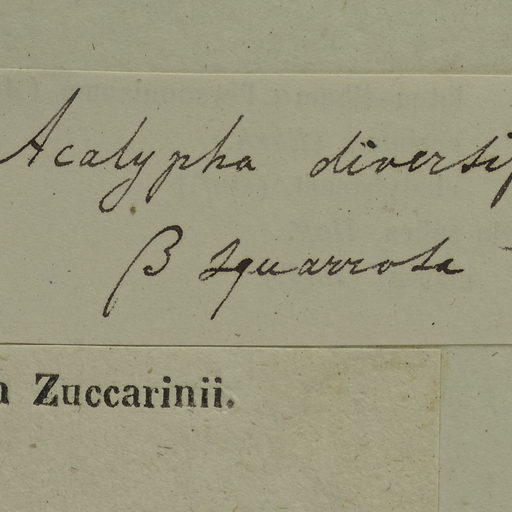 Acalypha diversif
β squarrosa
Zuccarinii.